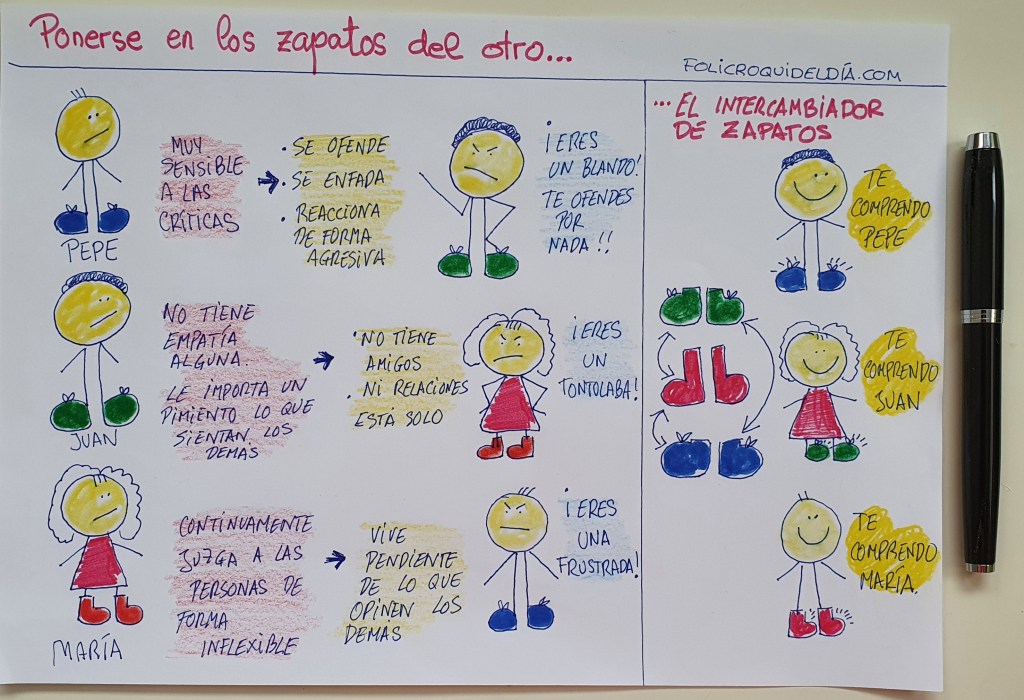 Ponerse en los zapatos del otro...
FOLICROQUIDELDÍA.COM
PEPE
MUY
SENSIBLE
A LAS
CRÍTICAS
. SE OFENDE
. SE ENFADA
. REACCIONA
DE FORMA
AGRESIVA
¡ERES
UN BLANDO!
TE OFENDES
POR
NADA!!
JUAN
NO TIENE
EMPATÍA
ALGUNA.
LE IMPORTA UN
PIMIENTO LO QUE
SIENTAN LOS
DEMÁS
. NO TIENE
AMIGOS
. NI RELACIONES
ESTÁ SOLO
¡ERES
UN
TONTOLABA!
MARÍA
CONTINUAMENTE
JUZGA A LAS
PERSONAS DE
FORMA
INFLEXIBLE
VIVE
PENDIENTE
DE LO QUE
OPINEN LOS
DEMÁS
¡ERES
UNA
FRUSTRADA!
... EL INTERCAMBIADOR
DE ZAPATOS
TE
COMPRENDO
PEPE
TE
COMPRENDO
JUAN
TE
COMPRENDO
MARÍA.